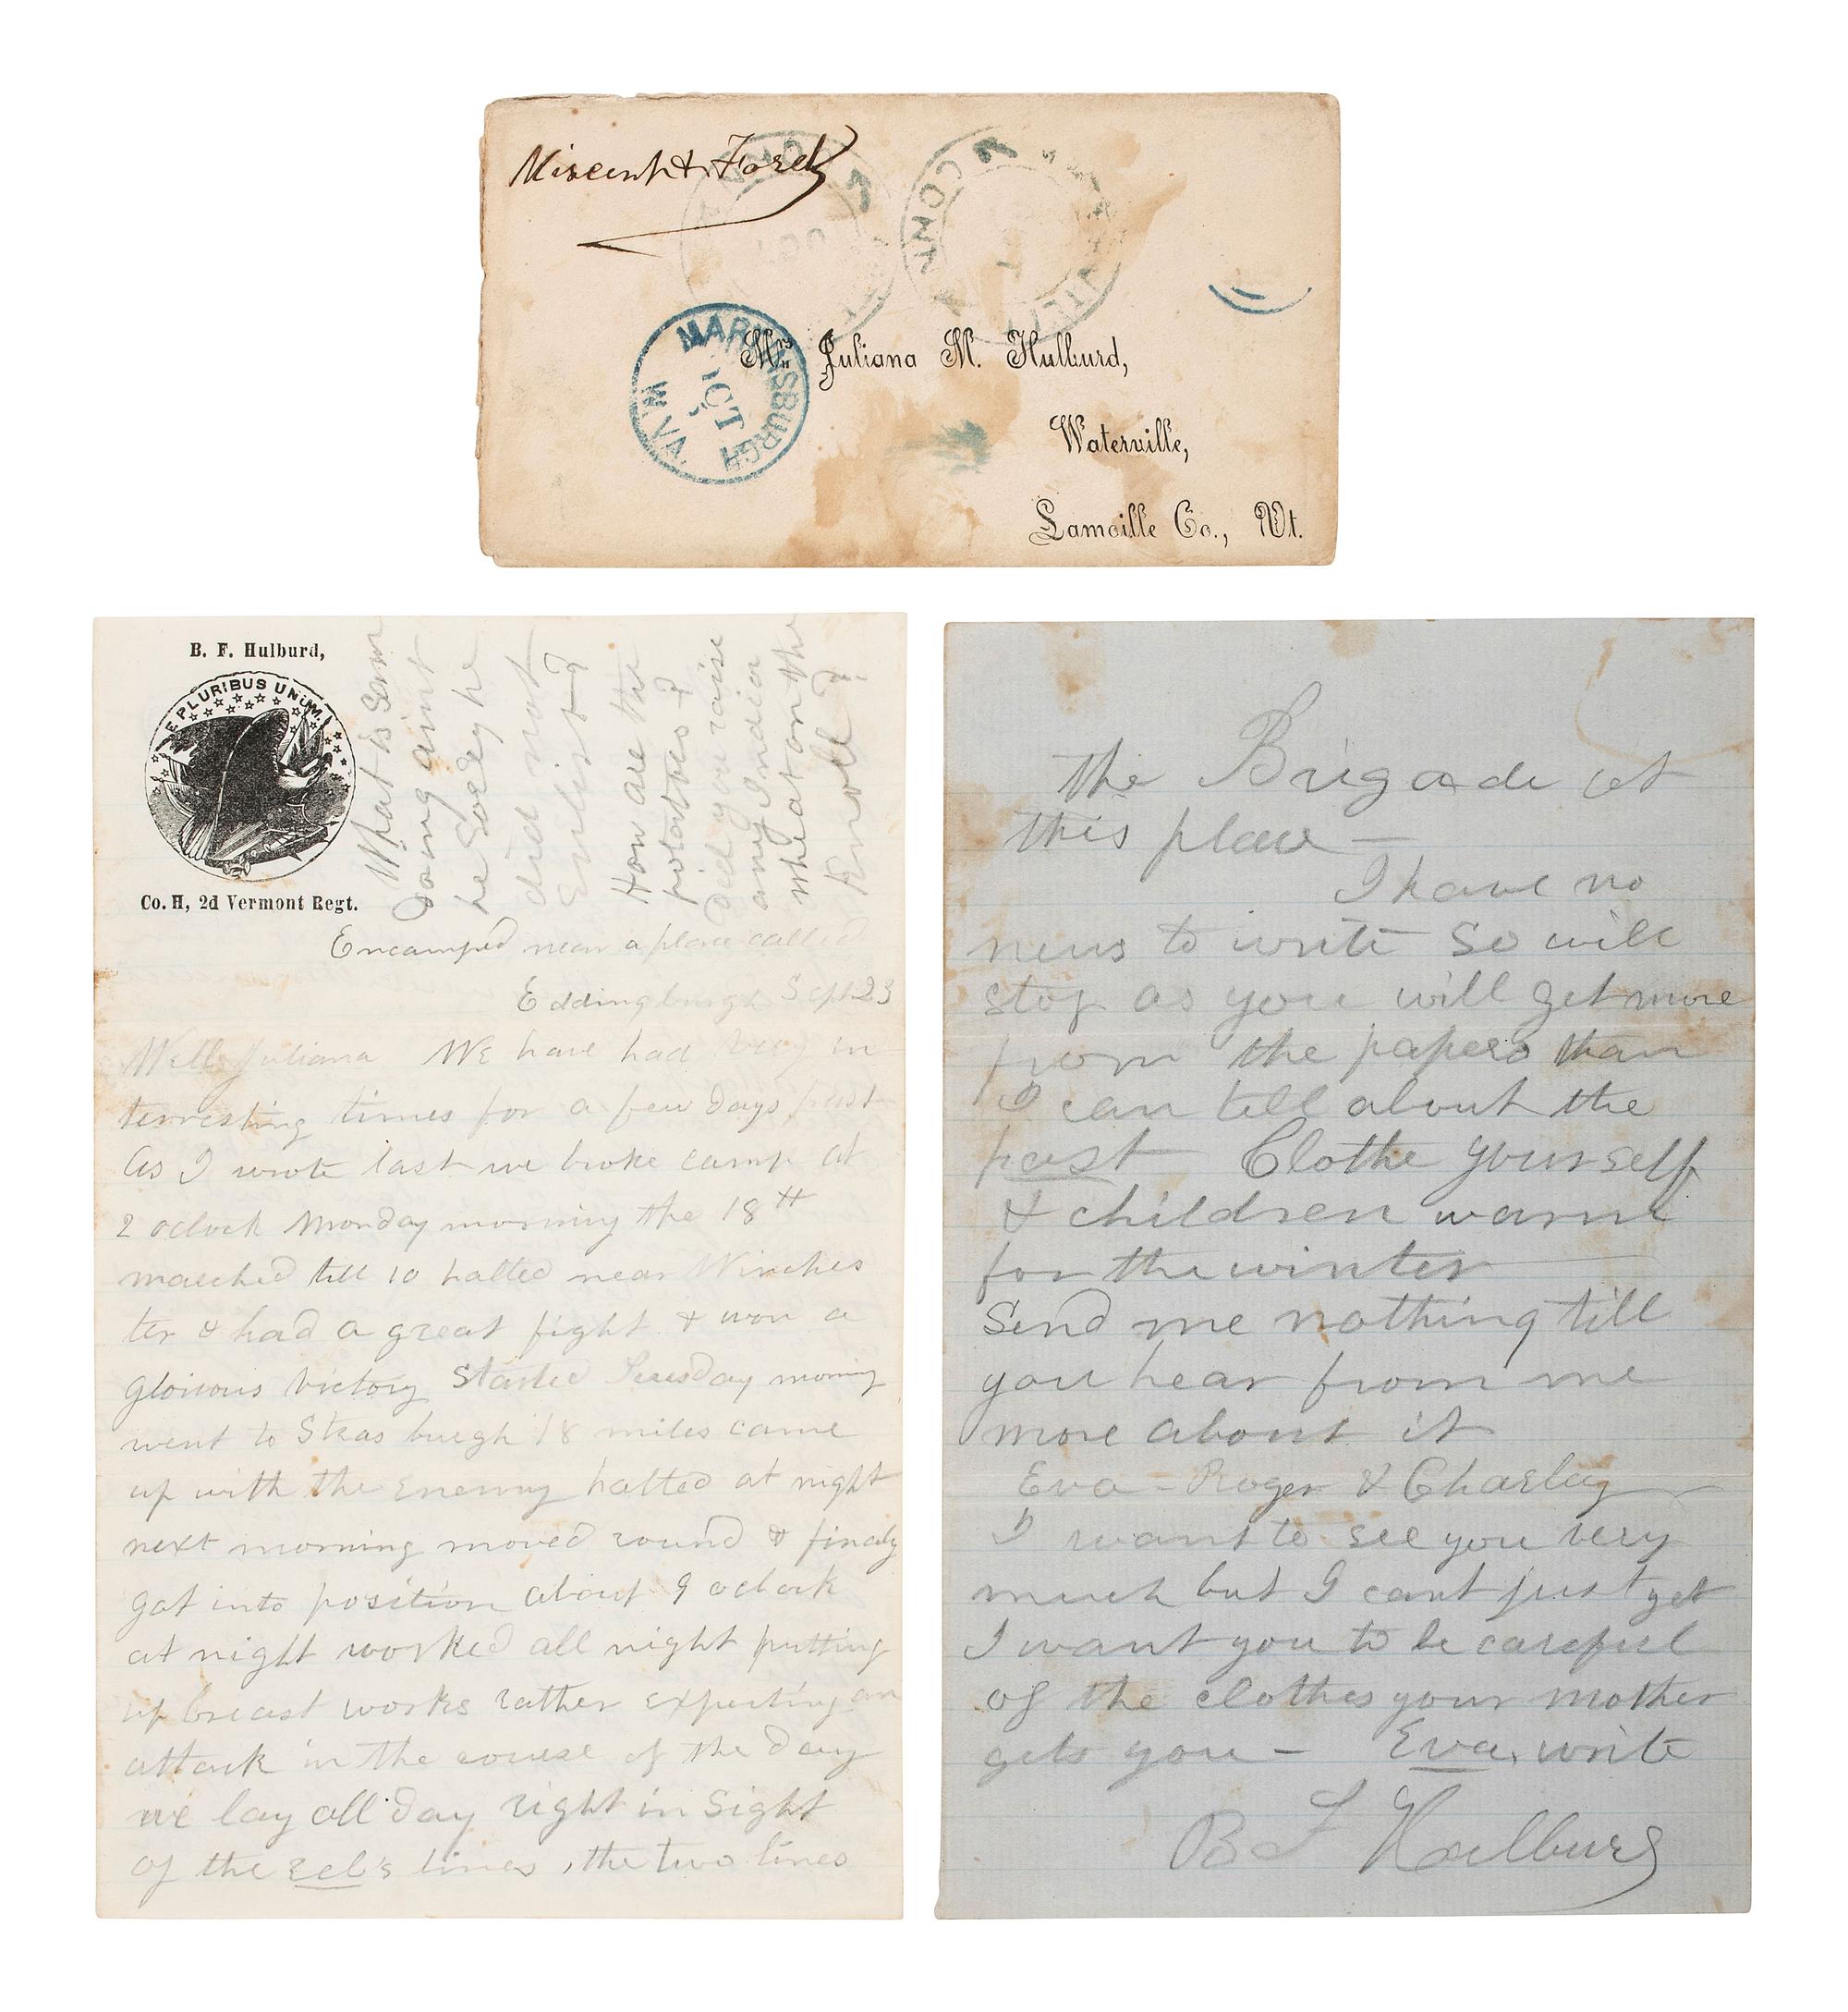 Missent & Forwd
MARTINSBURGH
OCT
W.VA.
Mrs Juliana M. Hulburd,
Waterville,
Lamoille Co., Vt.
B. F. Hulburd,
E PLURIBUS UNUM.
Co. H, 2d Vermont Regt.
What is Sam
Doing aint
he Sorry he
did not
Enlist?
How are the
potatoes?
Did you raise
any Indian
wheat on the
Knoll?
Encamped near a place called
Eddingburgh Sept 23
Well Juliana WE have had very in
terresting times for a few days past
As I wrote last we broke camp at
2 oclock Monday morning the 18th
marched till 10 halted near Winches
ter & had a great fight & won a
glorious victory Started Tuesday morning
went to Stras burgh 18 miles came
up with the Enemy halted at night
next morning moved round & finaly
got into position about 9 oclock
at night worked all night putting
up breast works rather expecting an
attack in the course of the day
we lay all day right in Sight
of the Reb's lines, the two lines
the Brigade at
this place —
I have no
news to write So will
stop as you will get more
from the papers than
I can tell about the
past Clothe yourself
& children warm
for the winter
Send me nothing till
you hear from me
more about it
Eva - Roger & Charley
I want to see you very
much but I cant just yet
I want you to be careful
of the clothes your mother
gets you — Eva, write
B F Hulburd